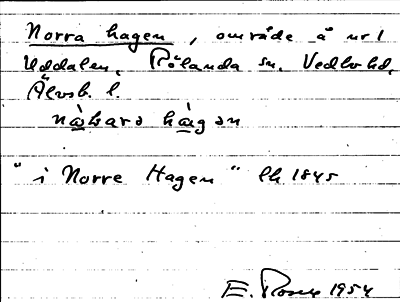 Norra hagen, område å nr 1
Uddalen, Rölanda sn. Vedbo hd,
Älvsb. l.
hagən
"i Norre Hagen" lh 1845
E. Rosell 1954